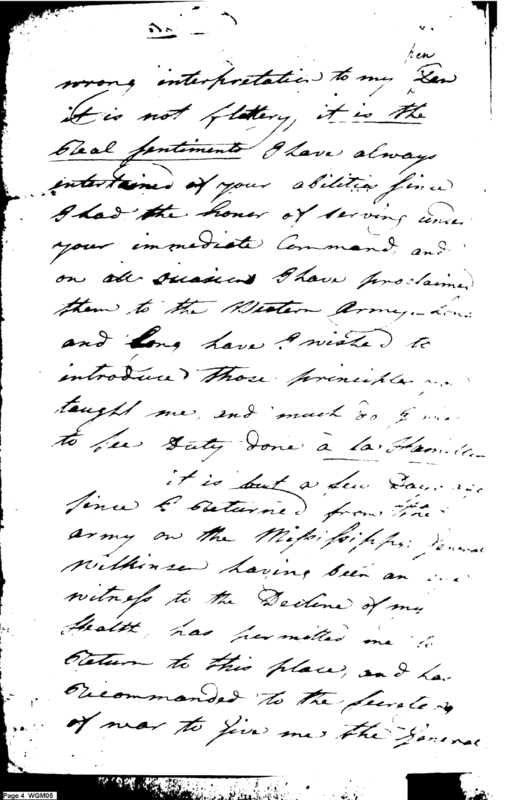 pen
wrong interpretation to my
it is not flattery, it is the
Real Sentiments I have always
entertained of your abilities Since
I had the honor of serving under
your immediate Command, and
on all occasions I have proclaimed
them to the Western Army
and Long have I wished to
introduce those principles
taught me, and much do I
to See Duty done a la
it is but a few Days
Since I Returned from the
army on the Mississippi General
Wilkinson having been an
witness to the Decline of my
Health, has permitted me to
Return to this place, and has
Recommanded to the Secretary
of war to give me the General
Page 4 WGM05